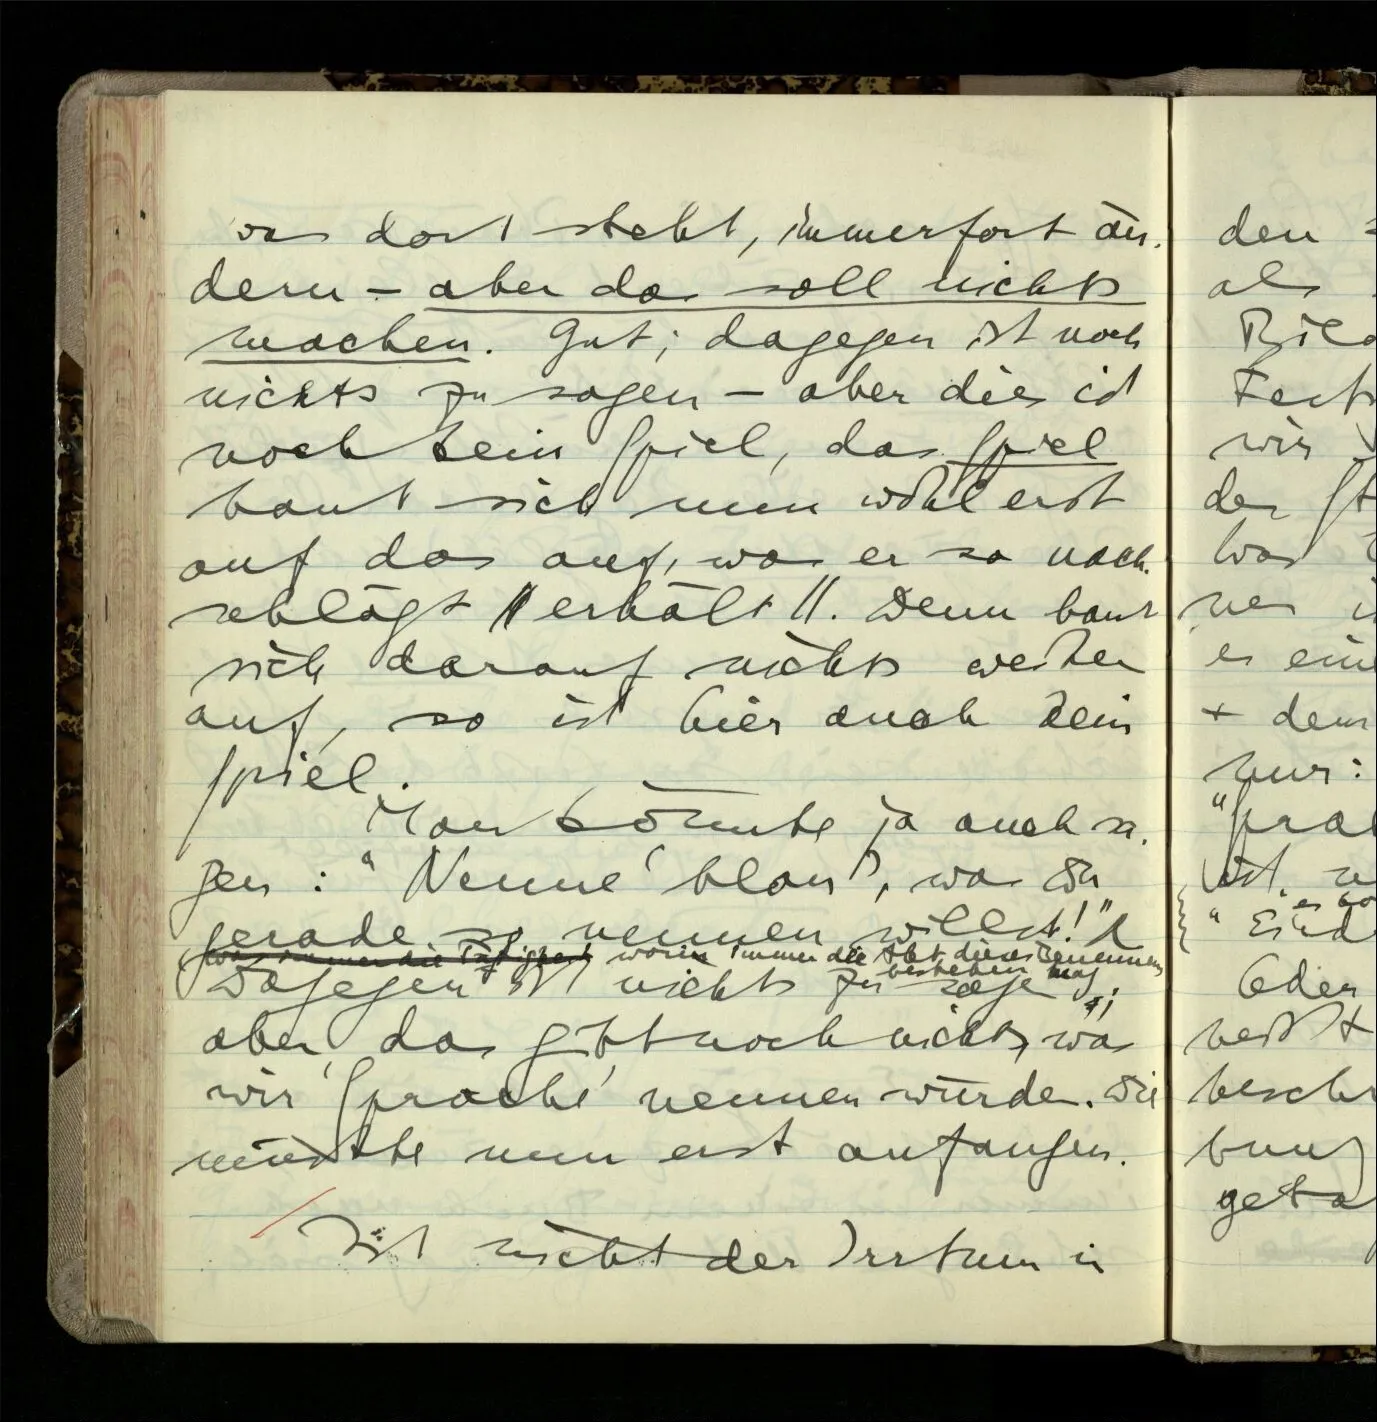 was dort steht, immerfort än-
dern – aber das soll nichts
machen. Gut; dagegen ist noch
nichts zu sagen – aber dies ist
noch kein Spiel, das Spiel
baut sich nun wohl erst
auf das auf, was er so nach-
schlägt || erhält ||. Denn baut
sich darauf nichts weiter
auf, so ist hier auch kein
Spiel.
Man könnte ja auch sa-
gen: "Nenne 'blau', was Du
gerade so nennen willst!"
was immer die Tätigkeit worin immer die Akt dieses Benennens
bestehen mag
Dagegen ist nichts zu sagen;
aber das gibt noch nichts, was
wir 'Sprache' nennen würden. Die
müsste nun erst anfangen.
Ist nicht der Irrtum i
den
als
wir
der
was
nes i
es eine
+ dem
nur:
ist,
Oder
besch